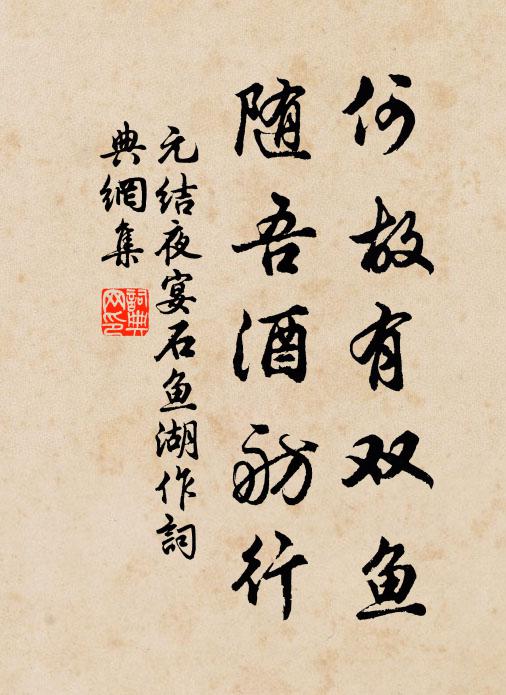 何故有双鱼
随吾酒舫行
元结夜宴石鱼湖作詞
典網集
詞典
网印